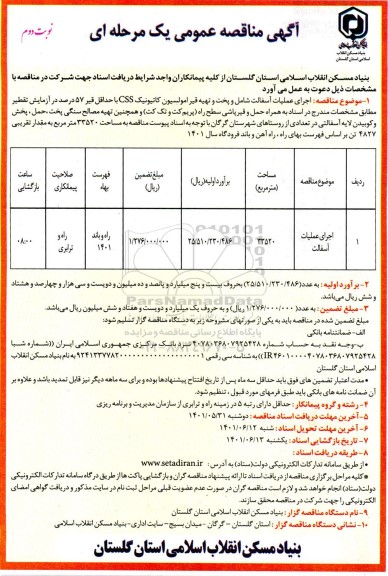 آگهی مناقصه عمومی یک مرحله ای
نوبت دوم
بنیاد مسکن انقلاب اسلامی
استان گلستان
بنیاد مسکن انقلاب اسلامی استان گلستان از کلیه پیمانکاران واجد شرایط دریافت اسناد جهت شرکت در مناقصه با
مشخصات ذیل دعوت به عمل می آورد
۱-موضوع مناقصه: اجرای عملیات آسفالت شامل و پخت و تهیه قیر امولسیون کاتیونیک CSS با حداقل قیر ۵۷ درصد در آزمایش تقطیر
مطابق مشخصات مندرج در اسناد به همراه حمل و قیرپاشی سطح راه (پریم کت و تک کت) و همچنین تهیه مصالح سنگی پخت ،حمل ، پخش
وکوبیدن لایه آسفالتی در تعدادی از روستاهای شهرستان گرگان با توجه به اسناد پیوست مناقصه به مساحت ۳۳۵۲۰ متر مربع به مقدار تقریبی
۴۸۲۷ تن بر اساس فهرست بهای راه ، راه آهن و باند فرودگاه سال ۱۴۰۱
ردیف موضوع مناقصه مساحت (مترمربع) برآورد اولیه (ریال) مبلغ تضمین (ریال) فهرست بهاء صلاحیت پیمانکاری ساعت بازگشایی
۱ اجرای عملیات آسفالت ۳۳۵۲۰ ۲۵/۵۱۰/۲۳۰/۴۸۶ ۱/۲۷۶/۰۰۰/۰۰۰ راه و باند ۱۴۰۱ راه و ترابری ۰۸:۰۰
۲- برآورد اولیه: به عدد (۲۵/۵۱۰/۲۳۰/۴۸۶) بحروف بیست و پنج میلیارد و پانصد و ده میلیون و دویست و سی هزار و چهارصد و هشتاد
و شش ریال می باشد.
۳- مبلغ تضمین : به عدد (۱/۲۷۶/۰۰۰/۰۰۰ ریال) و به حروف یک میلیارد و دویست و هفتاد و شش میلیون ریال می باشد.
مبلغ تضمین شده در مناقصه باید به یکی از صورتهای مشروحه زیر به دستگاه مناقصه گزار تسلیم شود:
الف- ضمانتنامه بانکی
استان گلستان
●مدت اعتبار تضمین های فوق باید حداقل سه ماه پس از تاریخ افتتاح پیشنهادها بوده و برای سه ماهه دیگر نیز قابل تمدید باشد و علاوه بر
آن ضمانت نامه های بانکی باید طبق فرمهای مورد قبول ، تنظیم شود.
۴- رشته و گروه پیمانکار : حداقل دارای رتبه ۵ در زمینه راه و ترابری از سازمان مدیریت و برنامه ریزی
۵- آخرین مهلت دریافت اسناد مناقصه : دوشنبه ۱۴۰۱/۰۵/۳۱
۶- آخرین مهلت تحویل اسناد : شنبه ۱۴۰۱/۰۶/۱۲
۷- تاریخ بازگشایی اسناد : یکشنبه ۱۴۰۱/۰۶/۱۳
۸- طریقه دریافت اسناد :
●از طریق سامانه تدارکات الکترونیکی دولت(ستاد) به آدرس: www.setadiran.ir
●کلیه مراحل برگزاری مناقصه از دریافت اسناد تا ارائه پیشنهاد مناقصه گران و بازگشایی پاکت ها از طریق درگاه سامانه تدارکات الکترونیکی
دولت(ستاد) انجام خواهد شد و لازم است مناقصه گران در صورت عدم عضویت قبلی مراحل ثبت نام در سایت مذکور و دریافت گواهی امضای
الکترونیکی را جهت شرکت در مناقصه محقق سازند.
۹- نام دستگاه مناقصه گزار : بنیاد مسکن انقلاب اسلامی استان گلستان
۱۰- نشانی دستگاه مناقصه گزار : استان گلستان - گرگان - میدان بسیج - سایت اداری - بنیاد مسکن انقلاب اسلامی
بنیاد مسکن انقلاب اسلامی استان گلستان